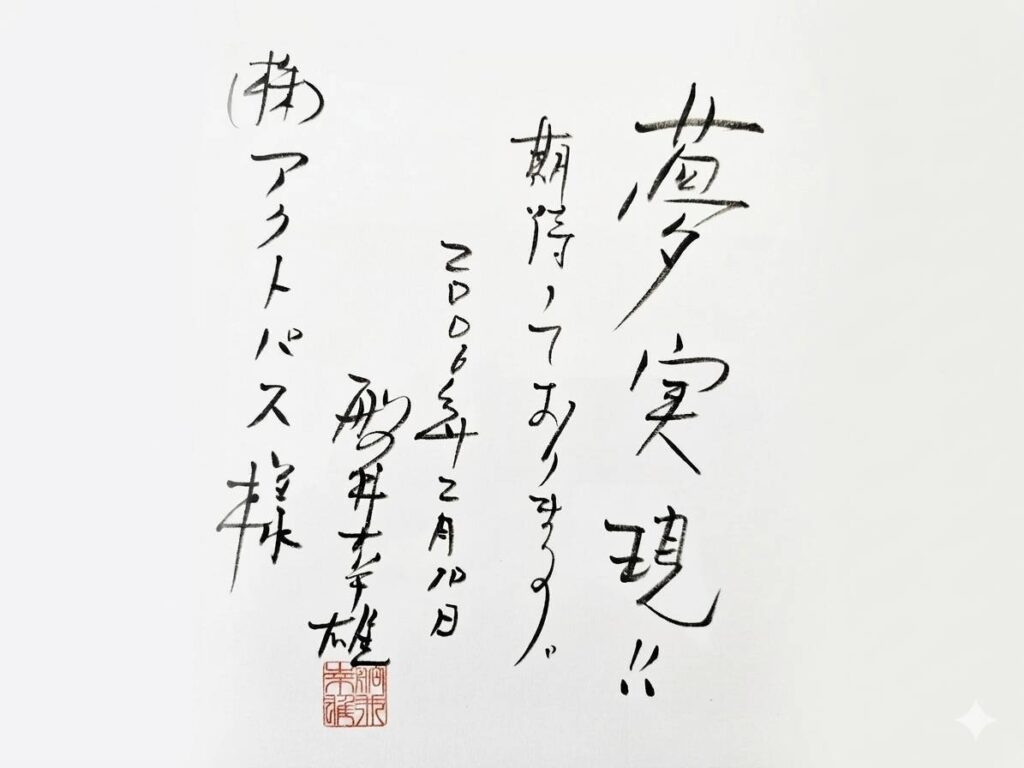 夢実現!!
期待しております。
2006年2月10日
船井幸雄
(株)アクトパス様
船井
幸雄